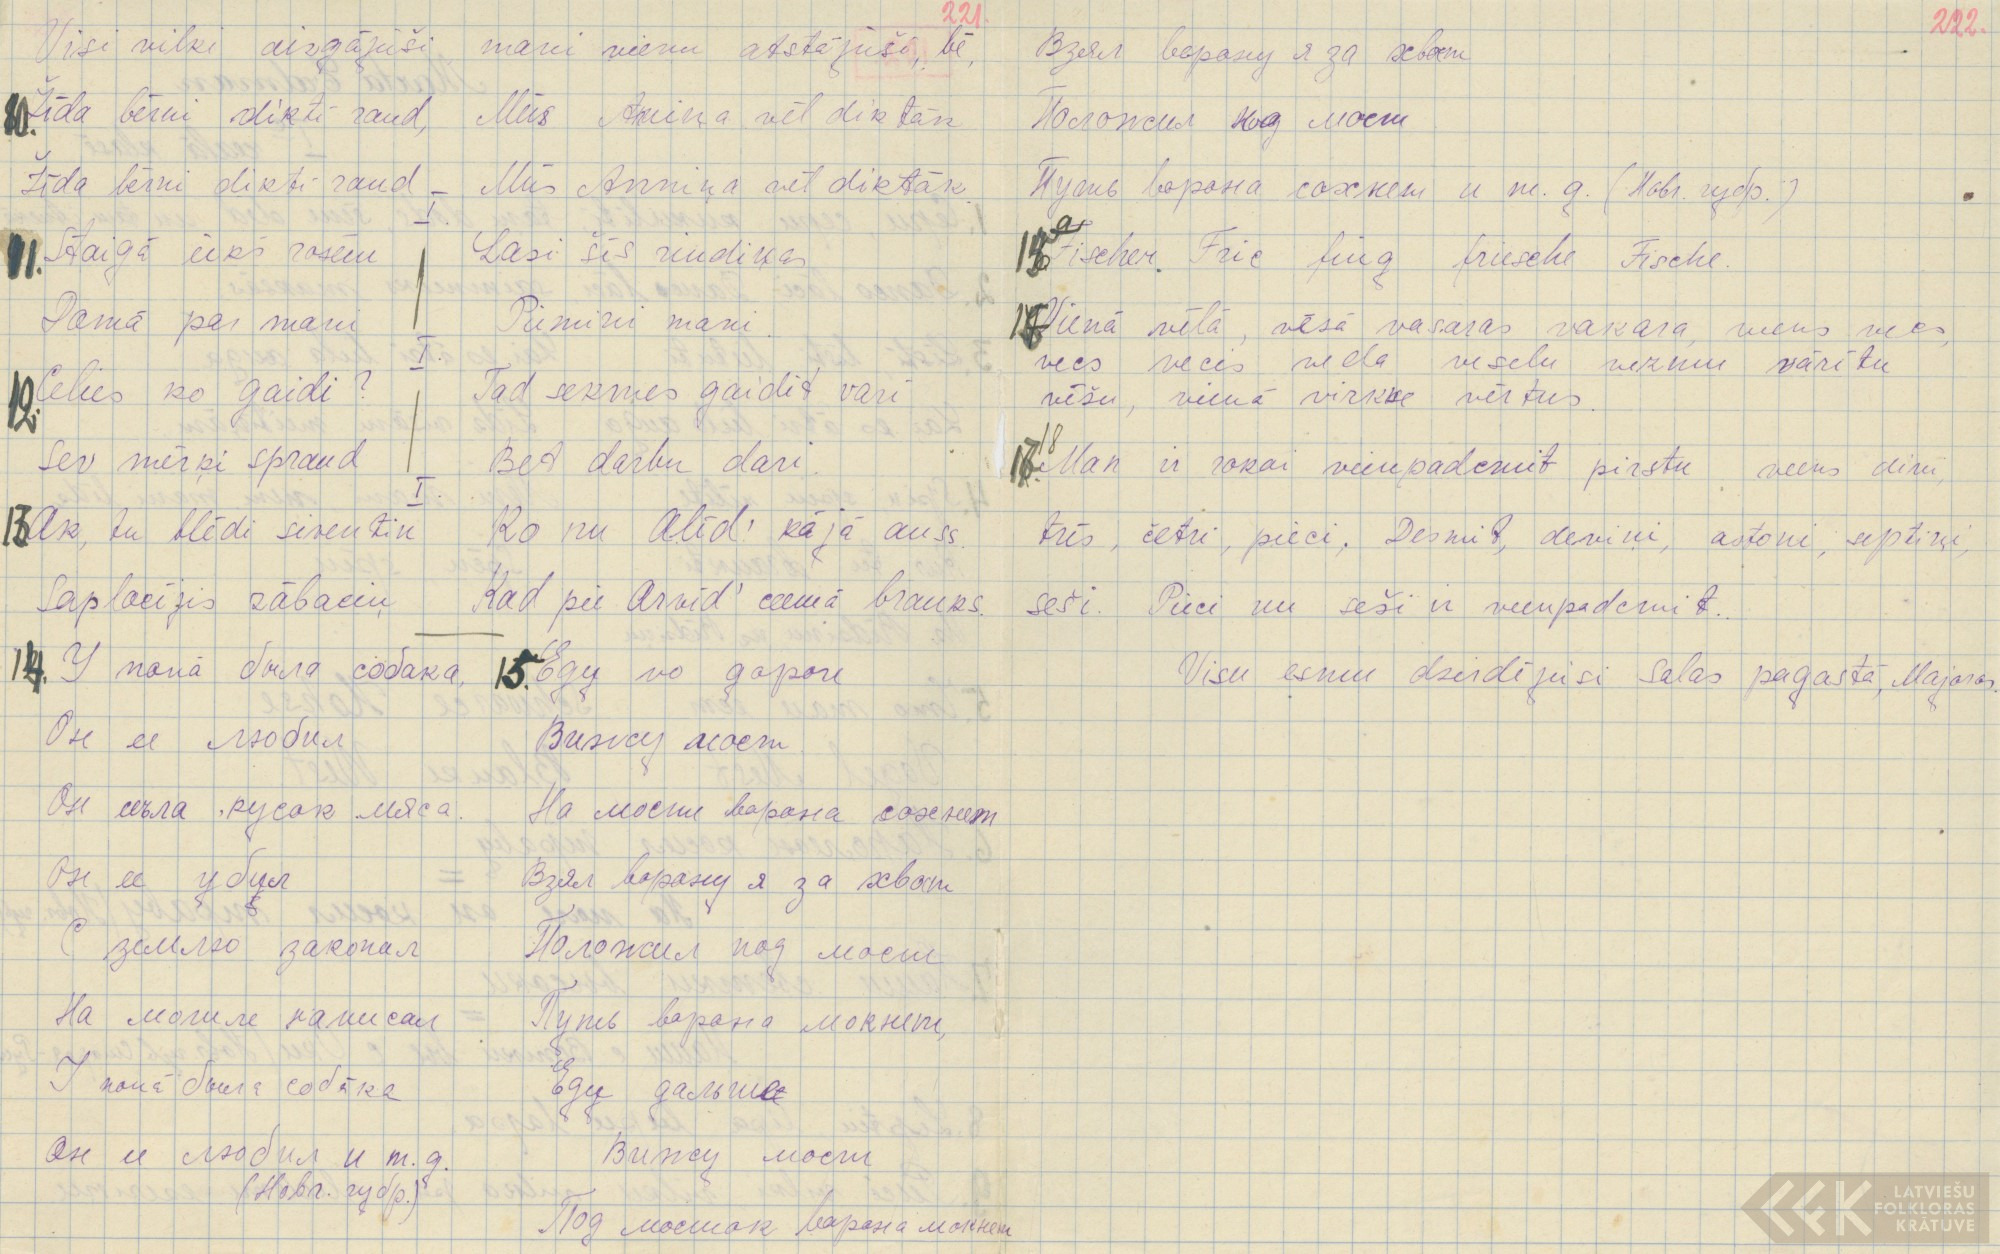 221.
Visi vilki aizgājuši, mani vienu atstājuši, bē,
10. Žīda bērni dikti raud, Mūs Anniņa vēl diktāk
Žīda bērni dikti raud Mūs Anniņa vēl diktāk.
I.
11. Staigā ūks rozēm Lasi šīs rindiņas
Domā par mani Piemini mani.
I.
12. Celies ko gaidi? Tad sekmes gaidīt vari
Sev mērķi spraud Bet darbu dari.
I.
13. Ak, tu blēdi siventiņ Ko nu Alīd' kājā auss.
Saplacījis zābaciņ Kad pie Arvīd' ciemā brauks.
14. У попа была собака,
Он ее любил
Он съела кусок мяса.
Он ее убил
С землю закопал
На могиле написал
У попа была собака
Он ее любил и т.д.
(Новг. губр.)
15. Еду по дороге
Вижу мост
На мосте ворона сохнет
Взял ворону я за хвост
Положил под мост
Путь ворона мокнет,
Еду дальше
Вижу мост
Под мосток ворона мокнет
222.
Взял ворону я за хвост
Положил под мост
Путь ворона сохнет и т.д. (Новг. губр.)
Fischer Fric fing friesche Fische.
Vienā vēlā, vēsā vasaras vakara, viens vecs,
vecs vecis veda veselu vezmu vārītu
vēžu, vienā virkne vērtus.
18 Man ir rokai vienpadcmit pirstu viens divi,
trīs, četri, pieci. Desmit, deviņi, astoņi, septiņi,
seši. Pieci un seši ir vienpadcmit.
Visu esmu dzirdējusi Salas pagastā, Majoros.
LATVIEŠU
FOLKLORAS
KRĀTUVE